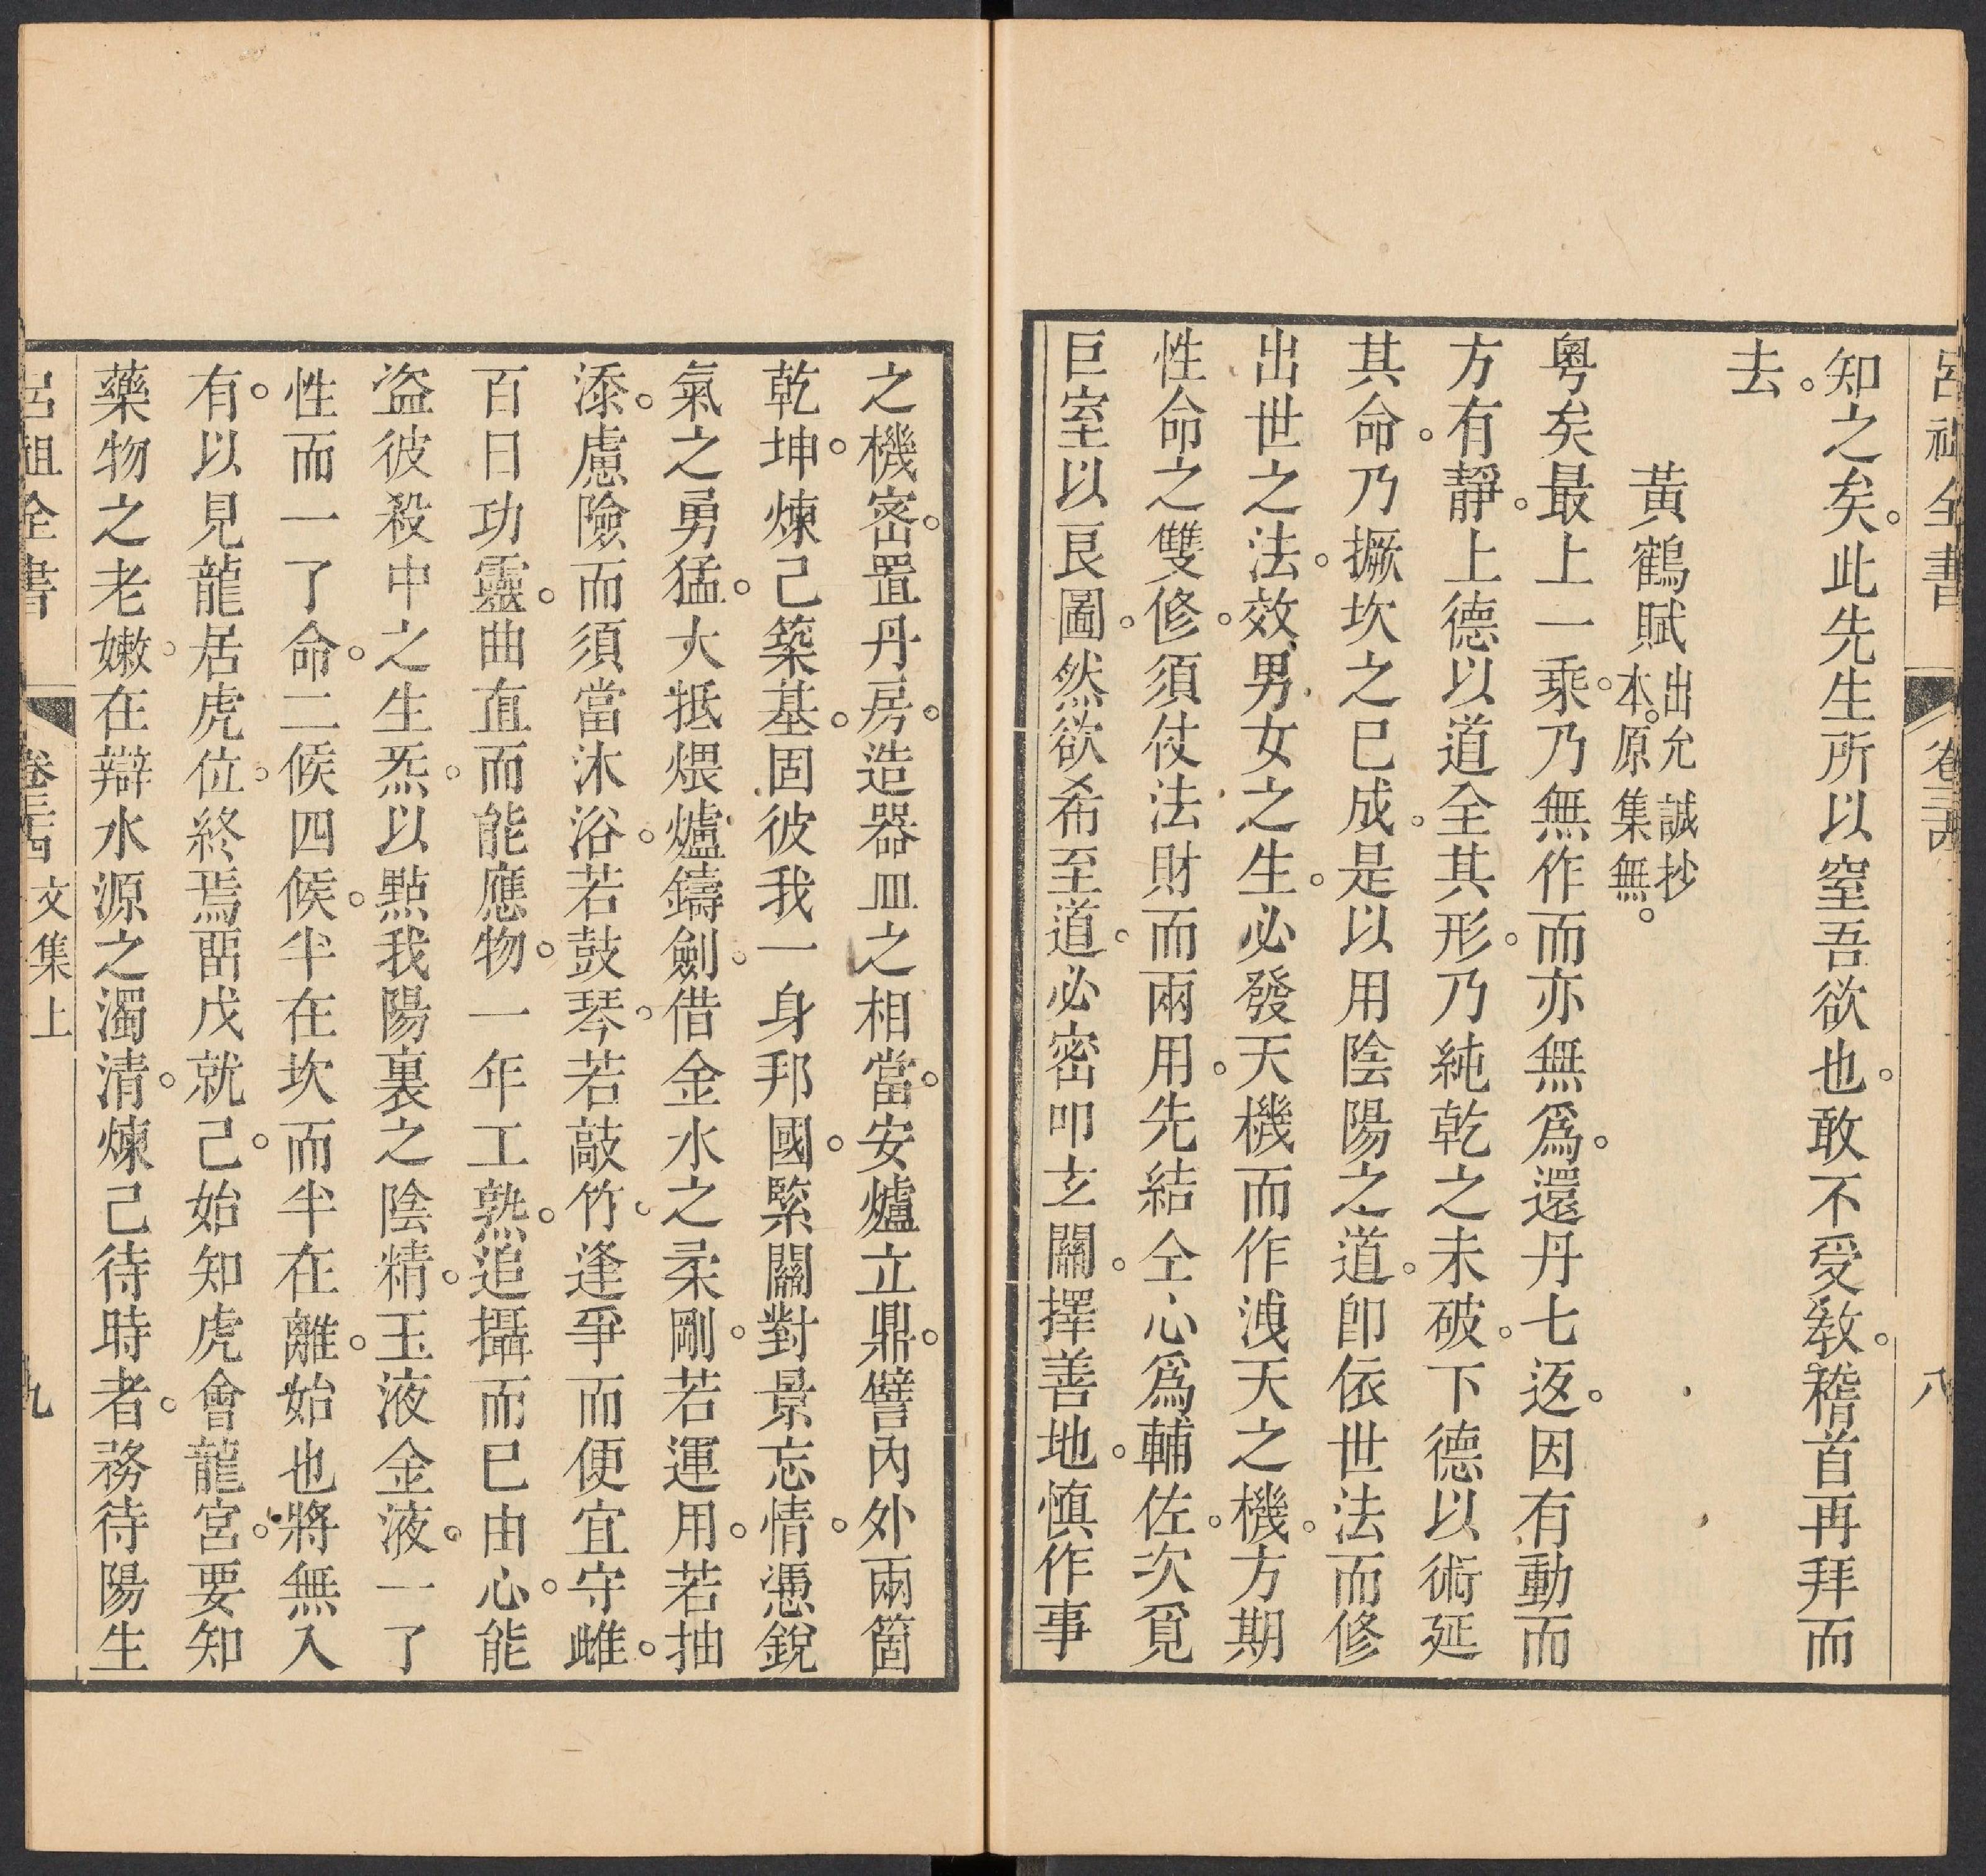 呂祖全書 卷三四 八
知之矣。此先生所以窒吾欲也。敢不受敎。稽首再拜而
去。
黃鶴賦 出允誠抄本。原集無。
粵矣最上一乘。乃無作而亦無爲。還丹七返。因有動而
方有靜。上德以道全其形。乃純乾之未破。下德以術延
其命。乃撅坎之已成。是以用陰陽之道。卽依世法而修
出世之法。效男女之生。必發天機而作洩天之機。方期
性命之雙修。須仗法財而兩用。先結仝心爲輔佐。次覓
巨室以艮圖。然欲希至道。必密叩玄關。擇善地。愼作事
之機密。置丹房。造器皿之相當。安爐立鼎。譬內外兩箇
乾坤。煉己築基。固彼我一身邦國。緊關對景忘情。憑銳
氣之勇猛。大抵煨爐鑄劍。借金水之柔剛。若運用。若抽
添。慮險而須當沐浴。若鼓琴。若敲竹。逢爭而便宜守雌。
百日功靈。曲直而能應物。一年工熟。追攝而已由心。能
盜彼殺中之生炁。以點我陽裏之陰精。玉液金液。一了
性而一了命。二候四候。半在坎而半在離。始也將無入
有。以見龍居虎位。終焉畱戊就己。始知虎會龍宮。要知
藥物之老嫩。在辯水源之濁清。煉己待時者。務待陽生
呂祖全書 卷三四 文集上 九